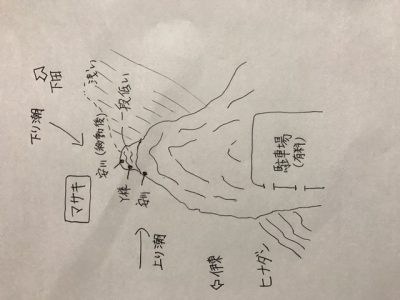 下田
下り潮
浅い
一段低い
安川(移動後)
マサキ
Y様
安川
上り潮
伊東
ヒナダン
駐車場
(有料)